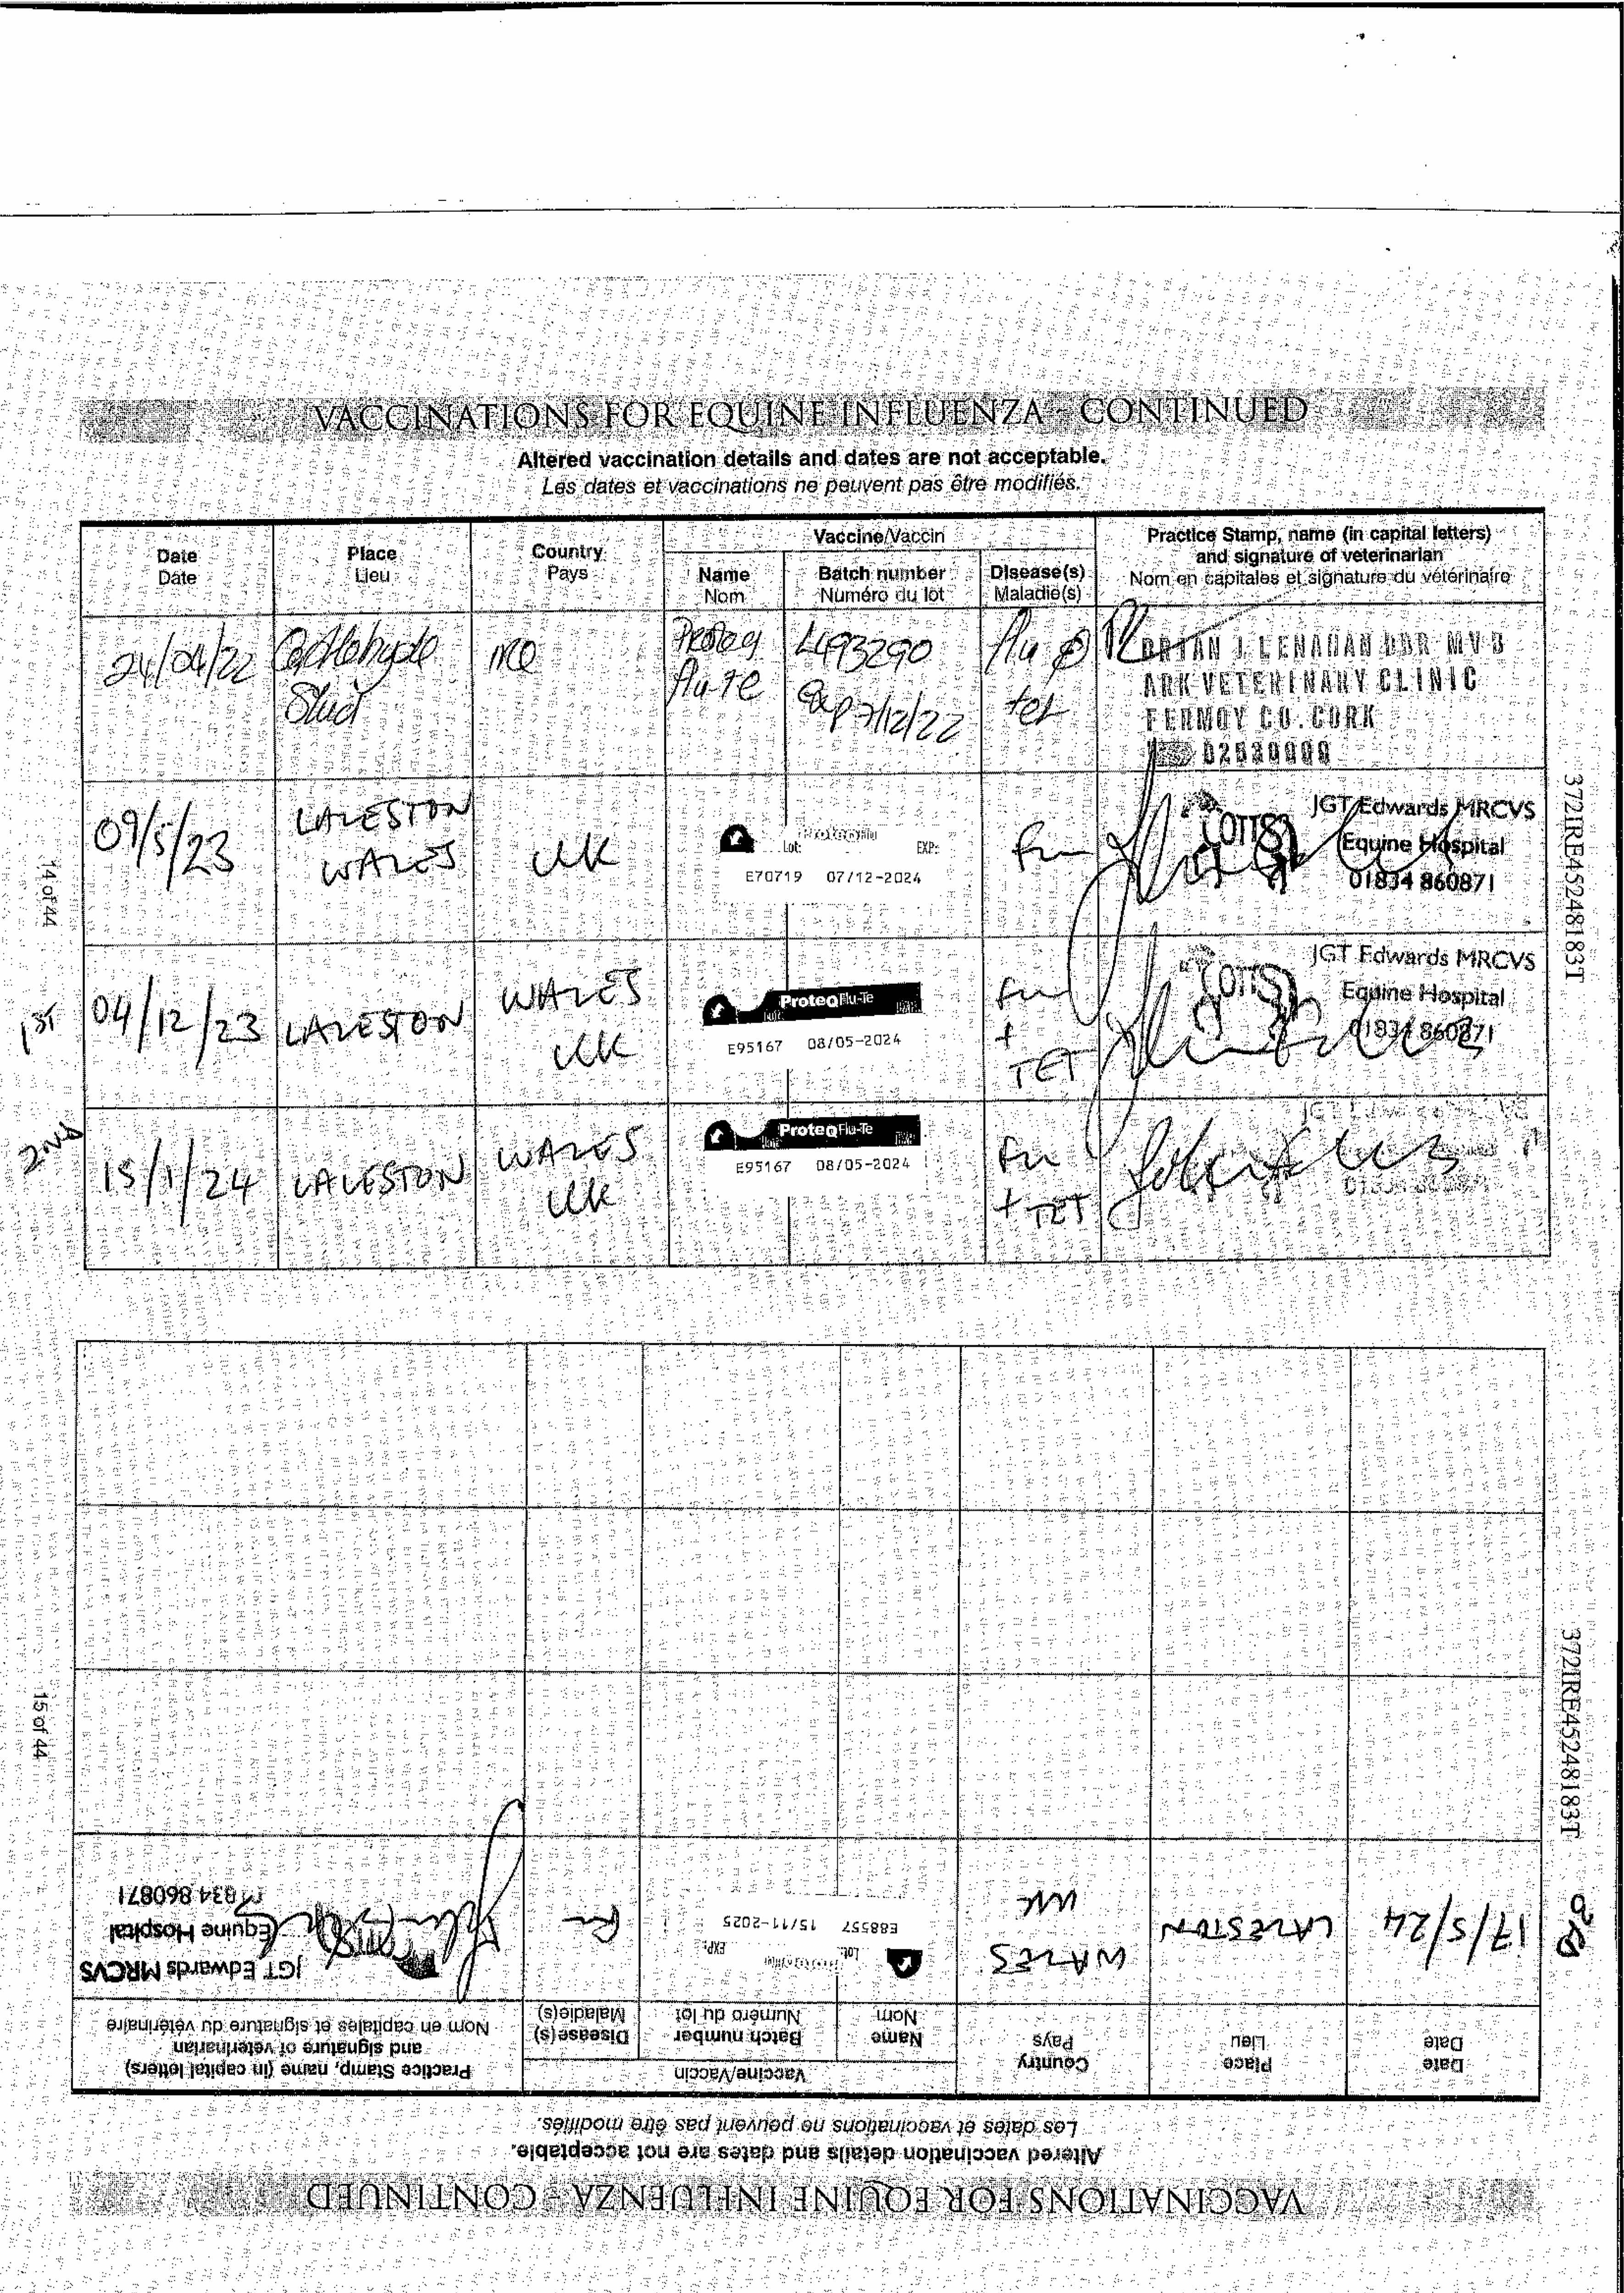 VACCINATIONS FOR EQUINE INFLUENZA - CONTINUED
Altered vaccination details and dates are not acceptable.
Les dates et vaccinations ne peuvent pas être modifiés.
Date Place Country Vaccine/Vaccin Practice Stamp, name (in capital letters)
and signature of veterinarian
Date Lieu Pays Name Batch number Disease(s) Nom en capitales et signature du vétérinaire
Nom Numéro du lot Maladie(s)
24/04/22 Castlehyde IRE Proteq L493290 flu & BRIAN J LENAHAN MVB
Stud flu TE Exp 7/12/22 tet ARK VETERINARY CLINIC
FERMOY CO. CORK
09/5/23 LALESTON UK Lot: EXP: Flu JGT Edwards MRCVS
WALES E70719 07/12-2024 Equine Hospital
01834 860871
1ST 04/12/23 LALESTON WALES ProteqFlu-Te Flu JGT Edwards MRCVS
UK E95167 08/05-2024 + Equine Hospital
TET 01834 860871
2ND 15/1/24 LALESTON WALES ProteqFlu-Te Flu
UK E95167 08/05-2024 + TET
14 of 44
372IRE45248183T
VACCINATIONS FOR EQUINE INFLUENZA - CONTINUED
Altered vaccination details and dates are not acceptable.
Les dates et vaccinations ne peuvent pas être modifiés.
Date Place Country Vaccine/Vaccin Practice Stamp, name (in capital letters)
and signature of veterinarian
Date Lieu Pays Name Batch number Disease(s) Nom en capitales et signature du vétérinaire
Nom Numéro du lot Maladie(s)
17/5/24 LALESTON WALES Lot: EXP: Flu JGT Edwards MRCVS
UK E88557 15/11-2025 Equine Hospital
01834 860871
15 of 44
372IRE45248183T